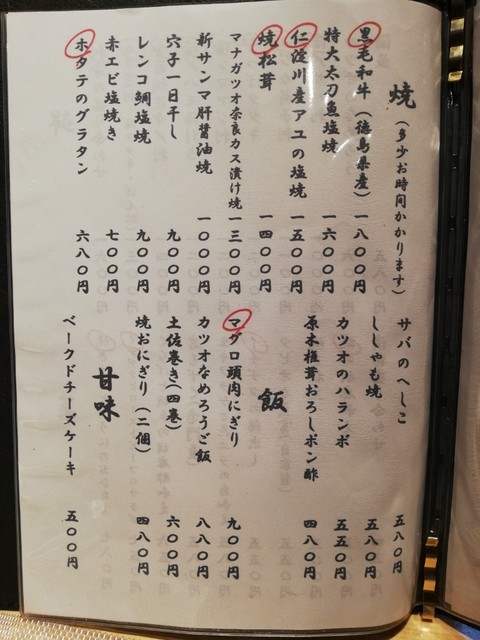 焼(多少お時間かかります)
黒毛和牛(徳島県産) 一八〇〇円
特大太刀魚塩焼 一六〇〇円
仁淀川産アユの塩焼 一五〇〇円
焼松茸 一四〇〇円
マナガツオ奈良カス漬け焼 一三〇〇円
新サンマ肝醤油焼 一〇〇〇円
穴子一日干し 九〇〇円
レンコ鯛塩焼 九〇〇円
赤エビ塩焼き 七〇〇円
ホタテのグラタン 六八〇円
サバのへしこ 五八〇円
ししゃも焼 五八〇円
カツオのハランボ 五五〇円
原木椎茸おろしポン酢 四八〇円
飯
マグロ頭肉にぎり 九〇〇円
カツオなめろうご飯 八八〇円
土佐巻き(四巻) 六〇〇円
焼おにぎり(二個) 四八〇円
甘味
ベークドチーズケーキ 五〇〇円